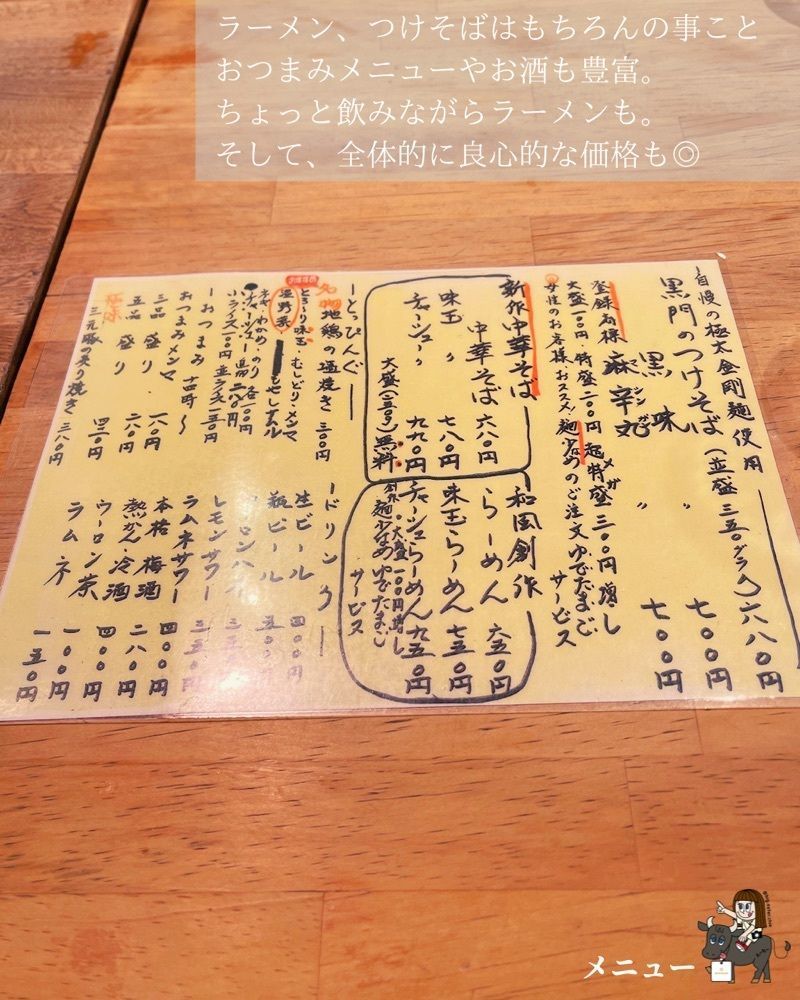 ラーメン、つけそばはもちろんの事こと
おつまみメニューやお酒も豊富。
ちょっと飲みながらラーメンも。
そして、全体的に良心的な価格も◎
自慢の極太金剛麺使用
黒門のつけそば(並盛三五〇グラム)六八〇円
黒 味 〃 七〇〇円
麻辛丸 〃 七〇〇円
登録商標
大盛一〇〇円 特盛二〇〇円 超特盛三〇〇円 増し
女性のお客様おススメ! 麺少なめのご注文ゆでたまごサービス
新作中華そば
中華そば 六八〇円
味玉 〃 七八〇円
チャーシュー〃 九九〇円
大盛(二五〇g)無料
和風創作
らーめん 六五〇円
味玉らーめん 七五〇円
チャーシューらーめん 九五〇円
大盛一〇〇円増し
麺少なめゆでたまごサービス
ーとっぴんぐー
名物地鶏の塩焼き 三〇〇円
とろ〜り味玉・むしどり・メンマ
温野菜
もやしナムル
ネギ・わかめ・のり 各一〇〇円
小ライス一〇〇円 並ライス一五〇円
ーおつまみ 十四時〜
おつまみメンマ
三品盛り 一八〇円
五品盛り 二八〇円
三元豚の炙り焼き 三八〇円
ードリンクー
生ビール 四〇〇円
瓶ビール 五〇〇円
レモンサワー
ラムネサワー
本格梅酒 四〇〇円
熱かん・冷酒 二八〇円
ウーロン茶
ラムネ 一五〇円
メニュー